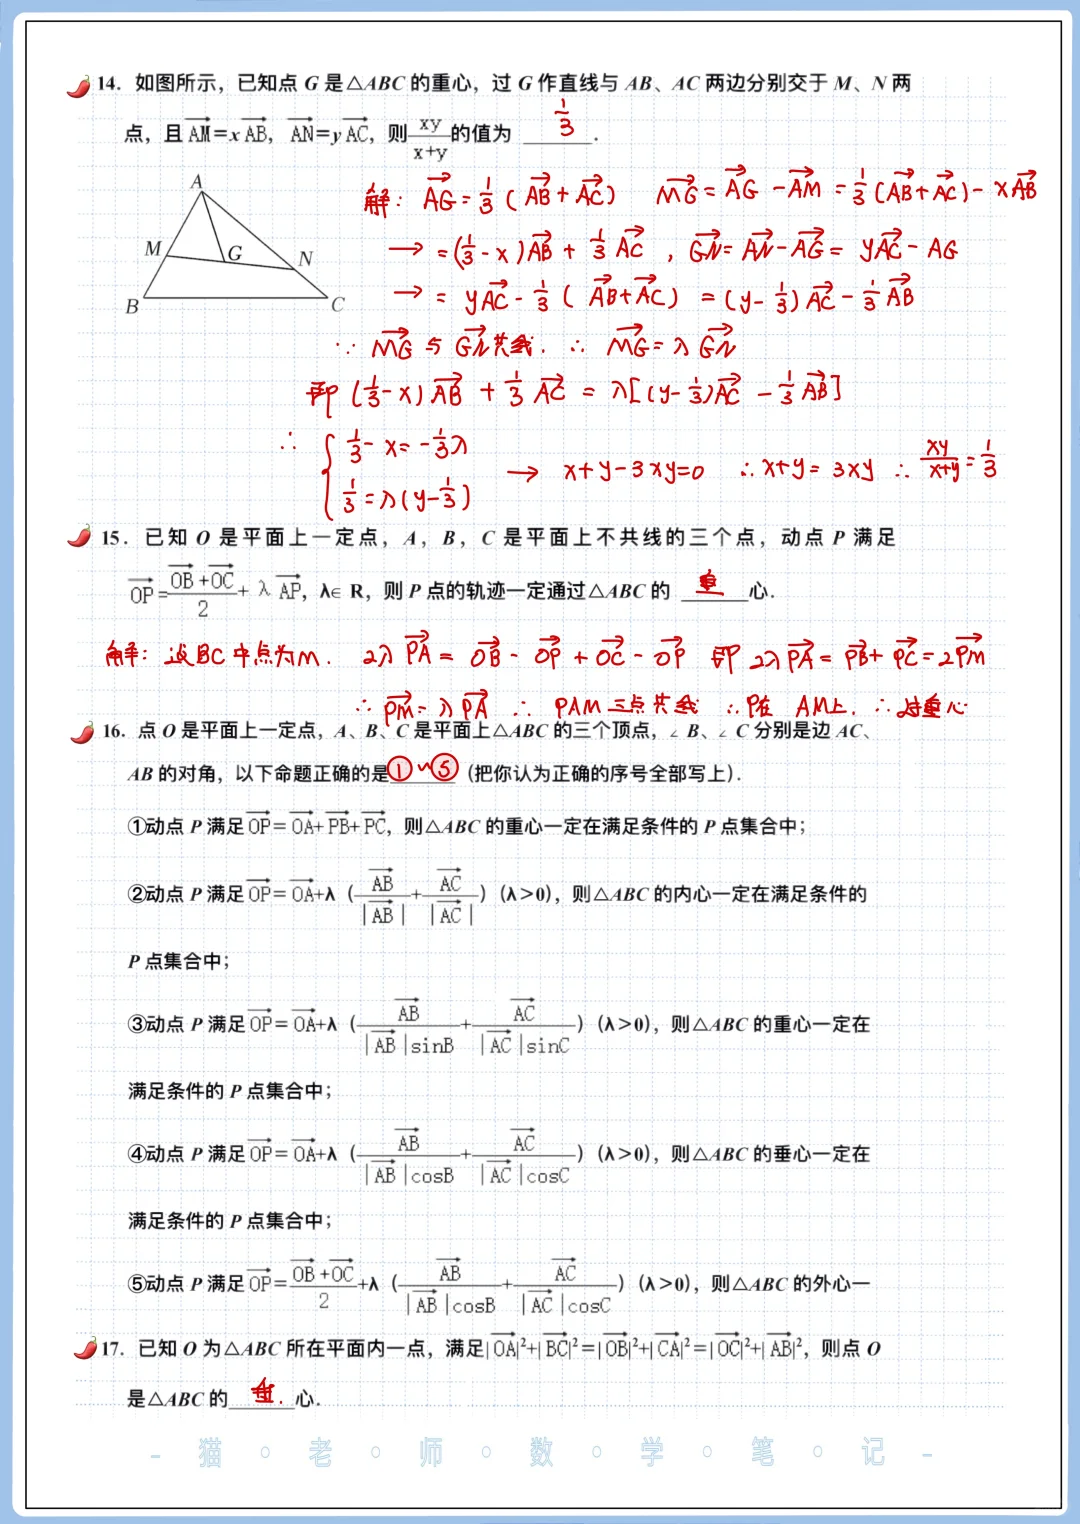 14. 如图所示，已知点 G 是△ABC 的重心，过 G 作直线与 AB、AC 两边分别交于 M、N 两
点，且AM=x AB，AN=y AC，则xy/x+y的值为 1/3 .
解：AG=1/3(AB+AC) MG=AG-AM=1/3(AB+AC)-xAB
→=(1/3-x)AB+1/3AC，GN=AN-AG=yAC-AG
→=yAC-1/3(AB+AC)=(y-1/3)AC-1/3AB
∵MG与GN共线.∴MG=λGN
即(1/3-x)AB+1/3AC=λ[(y-1/3)AC-1/3AB]
∴{1/3-x=-1/3λ
1/3=λ(y-1/3) → x+y-3xy=0 ∴x+y=3xy ∴xy/x+y=1/3
A
M
G
N
B
C
15. 已知 O 是平面上一定点，A，B，C 是平面上不共线的三个点，动点 P 满足
OP=OB+OC/2+λAP，λ∈R，则 P 点的轨迹一定通过△ABC 的 重 心.
解：设BC中点为M. 2λPA=OB-OP+OC-OP 即2λPA=PB+PC=2PM
∴PM=λPA ∴PAM三点共线 ∴P在AM上.∴过重心
16. 点 O 是平面上一定点，A、B、C 是平面上△ABC 的三个顶点，∠B、∠C 分别是边 AC、
AB 的对角，以下命题正确的是①~⑤（把你认为正确的序号全部写上）.
①动点 P 满足OP=OA+PB+PC，则△ABC 的重心一定在满足条件的 P 点集合中；
②动点 P 满足OP=OA+λ（AB/|AB|+AC/|AC|）（λ>0），则△ABC 的内心一定在满足条件的
P 点集合中；
③动点 P 满足OP=OA+λ（AB/|AB|sinB+AC/|AC|sinC）（λ>0），则△ABC 的重心一定在
满足条件的 P 点集合中；
④动点 P 满足OP=OA+λ（AB/|AB|cosB+AC/|AC|cosC）（λ>0），则△ABC 的垂心一定在
满足条件的 P 点集合中；
⑤动点 P 满足OP=OB+OC/2+λ（AB/|AB|cosB+AC/|AC|cosC）（λ>0），则△ABC 的外心一
17. 已知 O 为△ABC 所在平面内一点，满足|OA|²+|BC|²=|OB|²+|CA|²=|OC|²+|AB|²，则点 O
是△ABC 的 垂. 心.
- 猫·老·师·数·学·笔·记 -